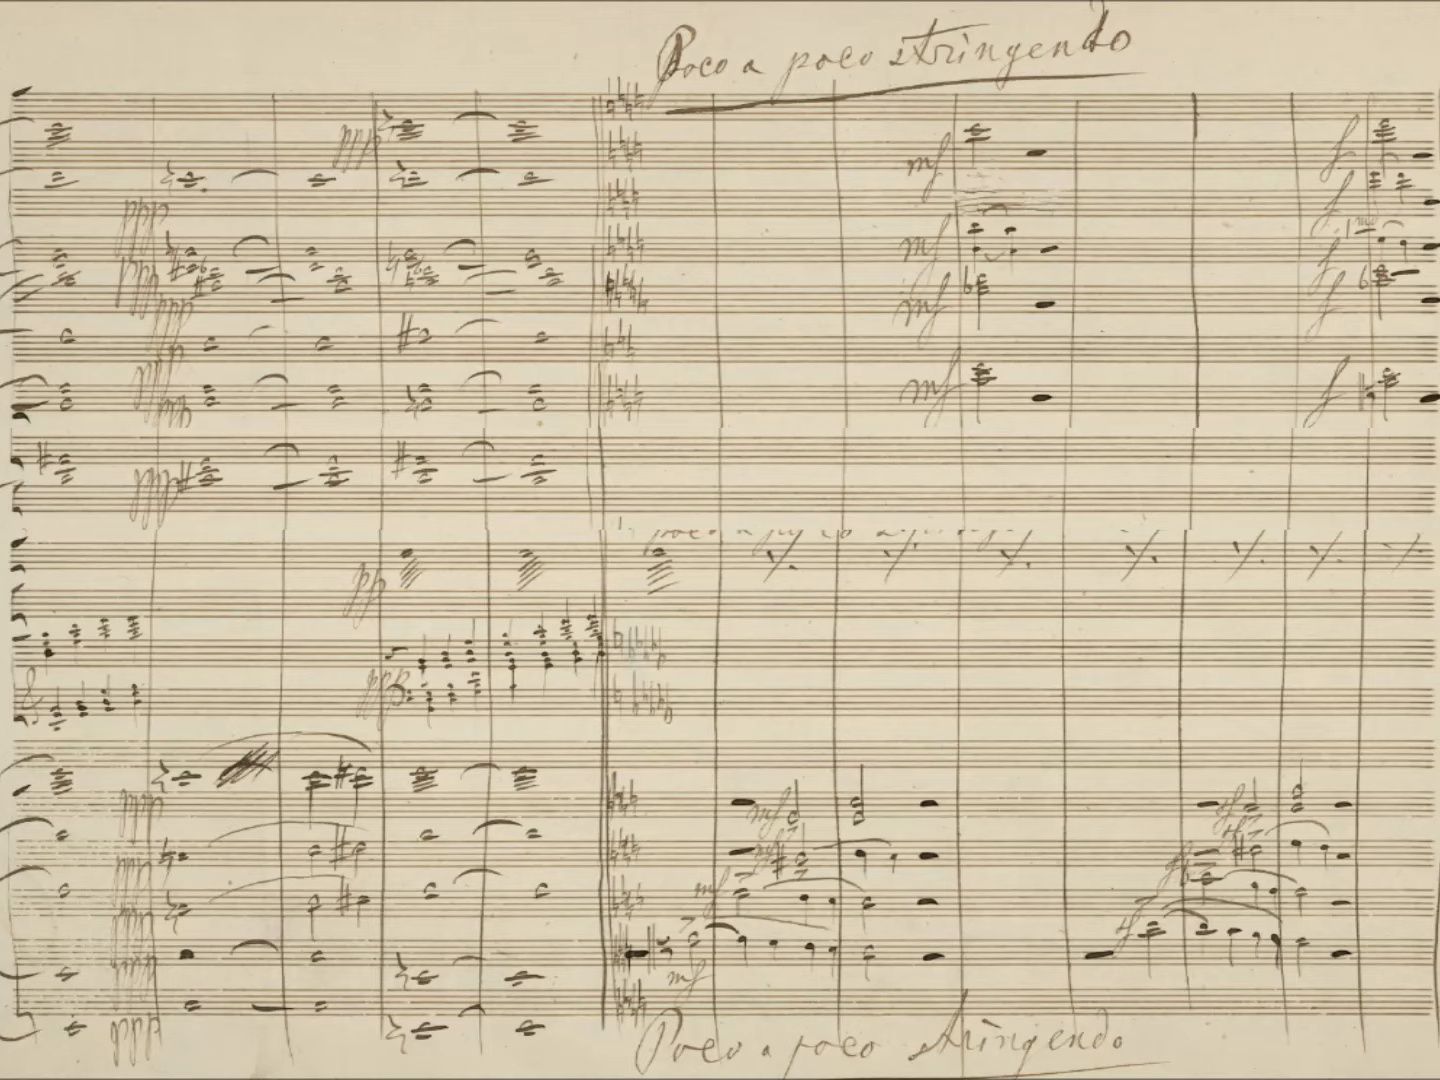 Poco a poco stringendo
ppp
mf
f
ppp
mf
f
ppp
mf
f
ppp
ppp
mf
f
ppp
ppp
poco a
pp
ppp
ppp
mf
ppp
ppp
mf
ppp
mf
ppp
Poco a poco stringendo